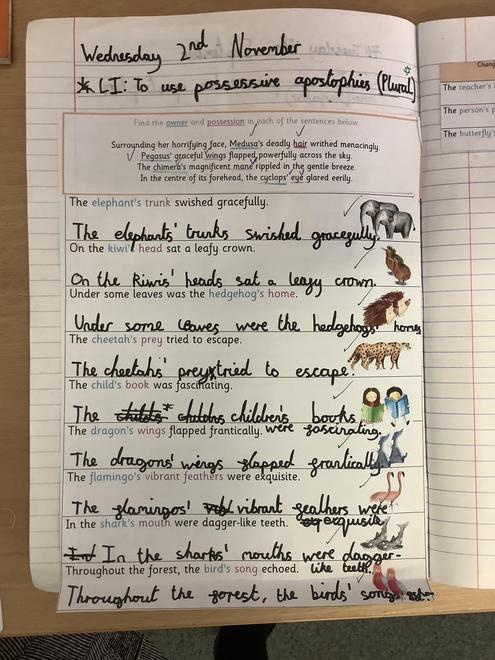 Wednesday 2nd November
* LI: To use possessive apostophies (Plural)
Find the owner and possession in each of the sentences below
Surrounding her horrifying face, Medusa's deadly hair writhed menacingly.
Pegasus' graceful wings flapped powerfully across the sky.
The chimera's magnificent mane rippled in the gentle breeze.
In the centre of its forehead, the cyclops' eye glared eerily.
The elephant's trunk swished gracefully.
The elephants' trunks swished gracefully.
On the kiwi's head sat a leafy crown.
On the Kiwis' heads sat a leafy crown.
Under some leaves was the hedgehog's home.
Under some leaves were the hedgehogs' homes
The cheetah's prey tried to escape.
The cheetahs' prey tried to escape.
The child's book was fascinating.
The childs * childns children's books
were fascinating.
The dragon's wings flapped frantically.
The dragons' wings flapped frantically
The flamingo's vibrant feathers were exquisite.
The flamingos' vibrant feathers were
exquisite
In the shark's mouth were dagger-like teeth.
In the sharks' mouths were dagger-
like teeth.
Throughout the forest, the bird's song echoed.
Throughout the forest, the birds' songs
Chang
The teacher's
The person's p
The butterfly's